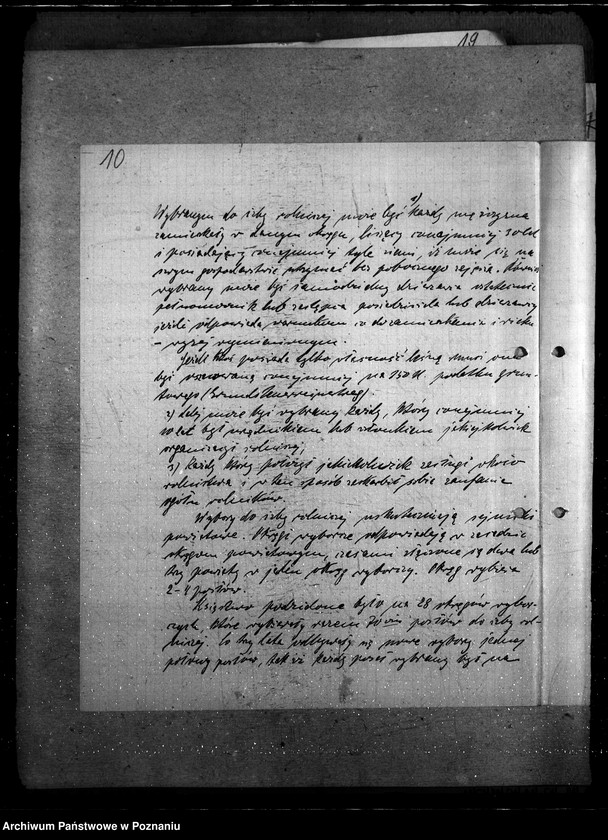 19
10
Wybranym do izby rolniczej może być 1) każdy mężczyzna
zamieszkały w danym okręgu, liczący conajmniej 30 lat
i posiadający conajmniej tyle ziemi, iż może się na
swym gospodarstwie utrzymać bez pobocznego zajęcia. Również
wybrany może być samodzielny dzierżawca
pełnomocnik lub zastępca posiedziciela lub dzierżawcy
jeżeli odpowiada warunkom co do zamieszkania i wieku
– wyżej wymienionym.
Jeżeli ktoś posiada tylko własność leśną musi ona
być szacowana conajmniej na 150 M. podatku grun-
towego
2) dalej może być wybrany każdy, który conajmniej
10 lat był urzędnikiem lub członkiem jakiejkolwiek
organizacji rolniczej,
3) każdy który położył jakiekolwiek zasługi około
rolnictwa i w ten sposób zaskarbił sobie zaufanie
ogółu rolników.
Wybory do izby rolniczej uskuteczniają sejmiki
powiatowe. Okręgi wyborcze odpowiadają w zasadzie
okręgom powiatowym, czasami złączone są dwa lub
trzy powiaty w jeden okręg wyborczy. Okręg wybiera
2–4 posłów.
Księstwo podzielone było na 28 okręgów wybor-
czych, które wybierały razem posłów do izby rol-
niczej. Co trzy lata odbywały się nowe wybory jednej
połowy posłów, tak iż każdy poseł wybrany był na
Archiwum Państwowe w Poznaniu